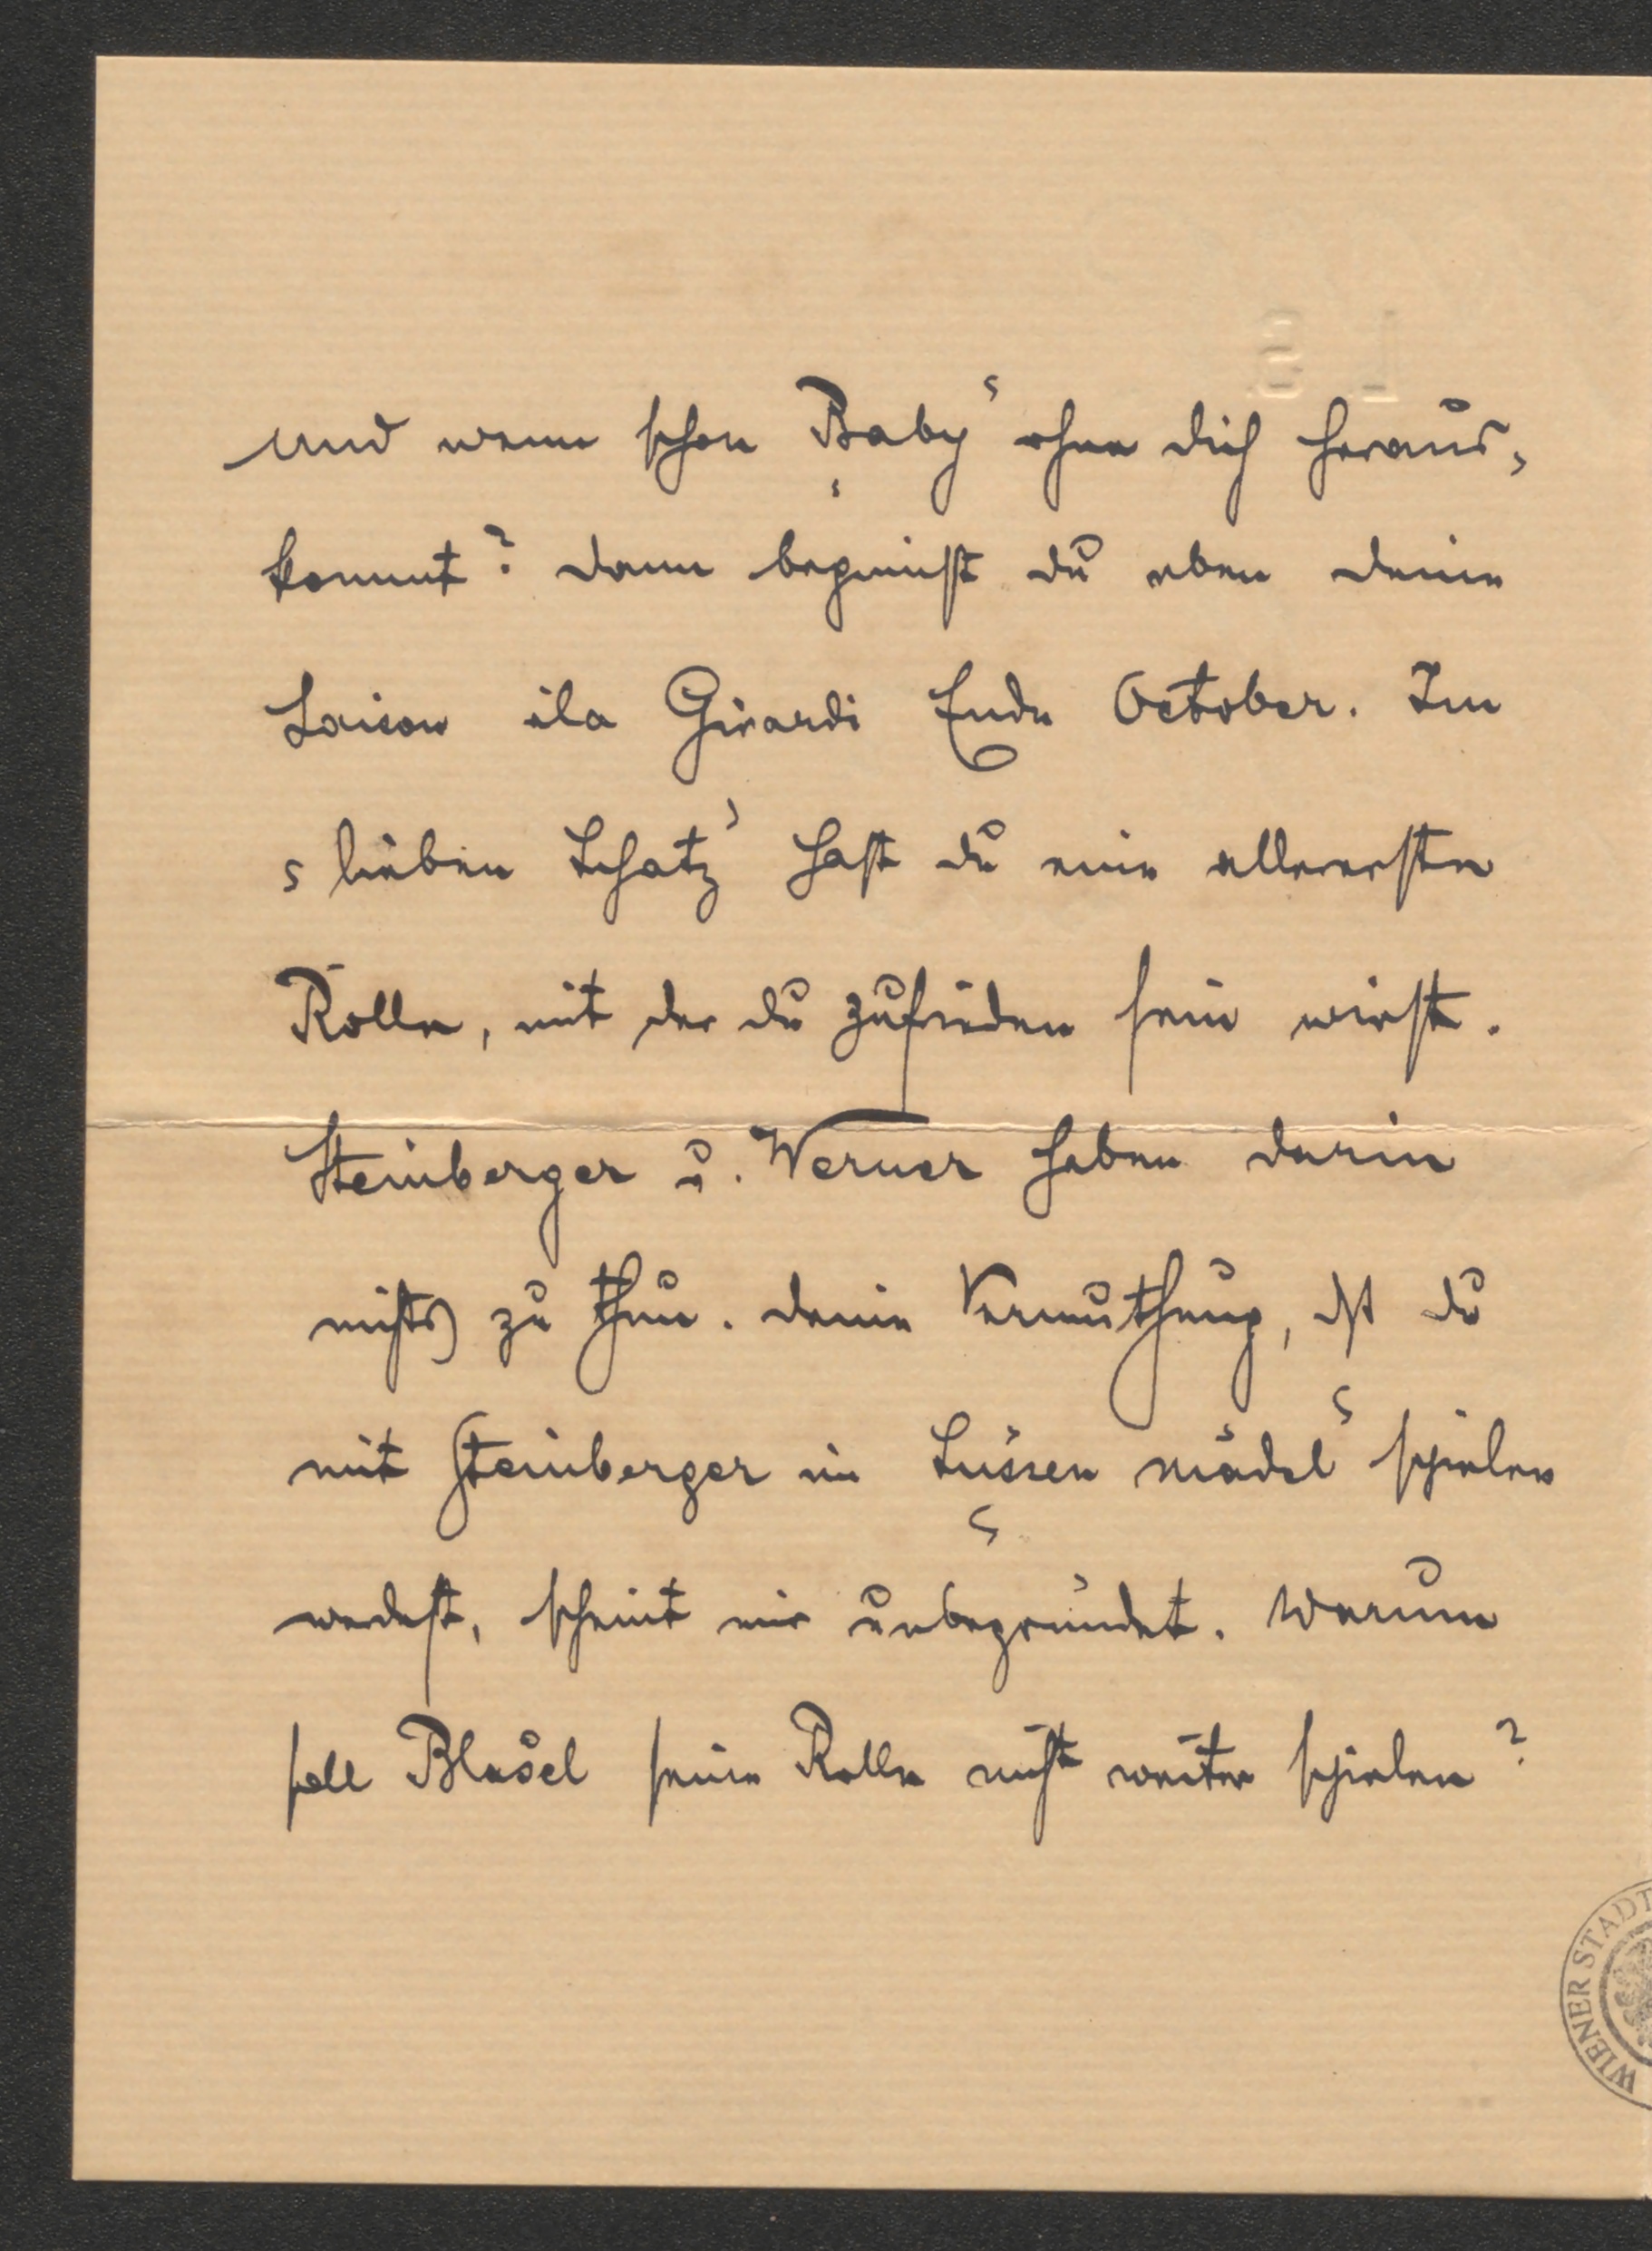 Und wenn schon ‚Baby‘ ohne dich heraus-
kommt? Dann beginnst du eben deine
Saison à la Girardi Ende October. Im
‚lieben Schatz‘ hast du eine allererste
Rolle, mit der du zufrieden sein wirst.
Steinberger u. Werner haben darin
nichts zu thun. Deine Vermuthung, dßt du
mit Steinberger im ‚Süssen Mädel‘ spielen
werdest, scheint mir unbegründet. Warum
soll Blasel seine Rolle nicht weiter spielen?
WIENER STADT